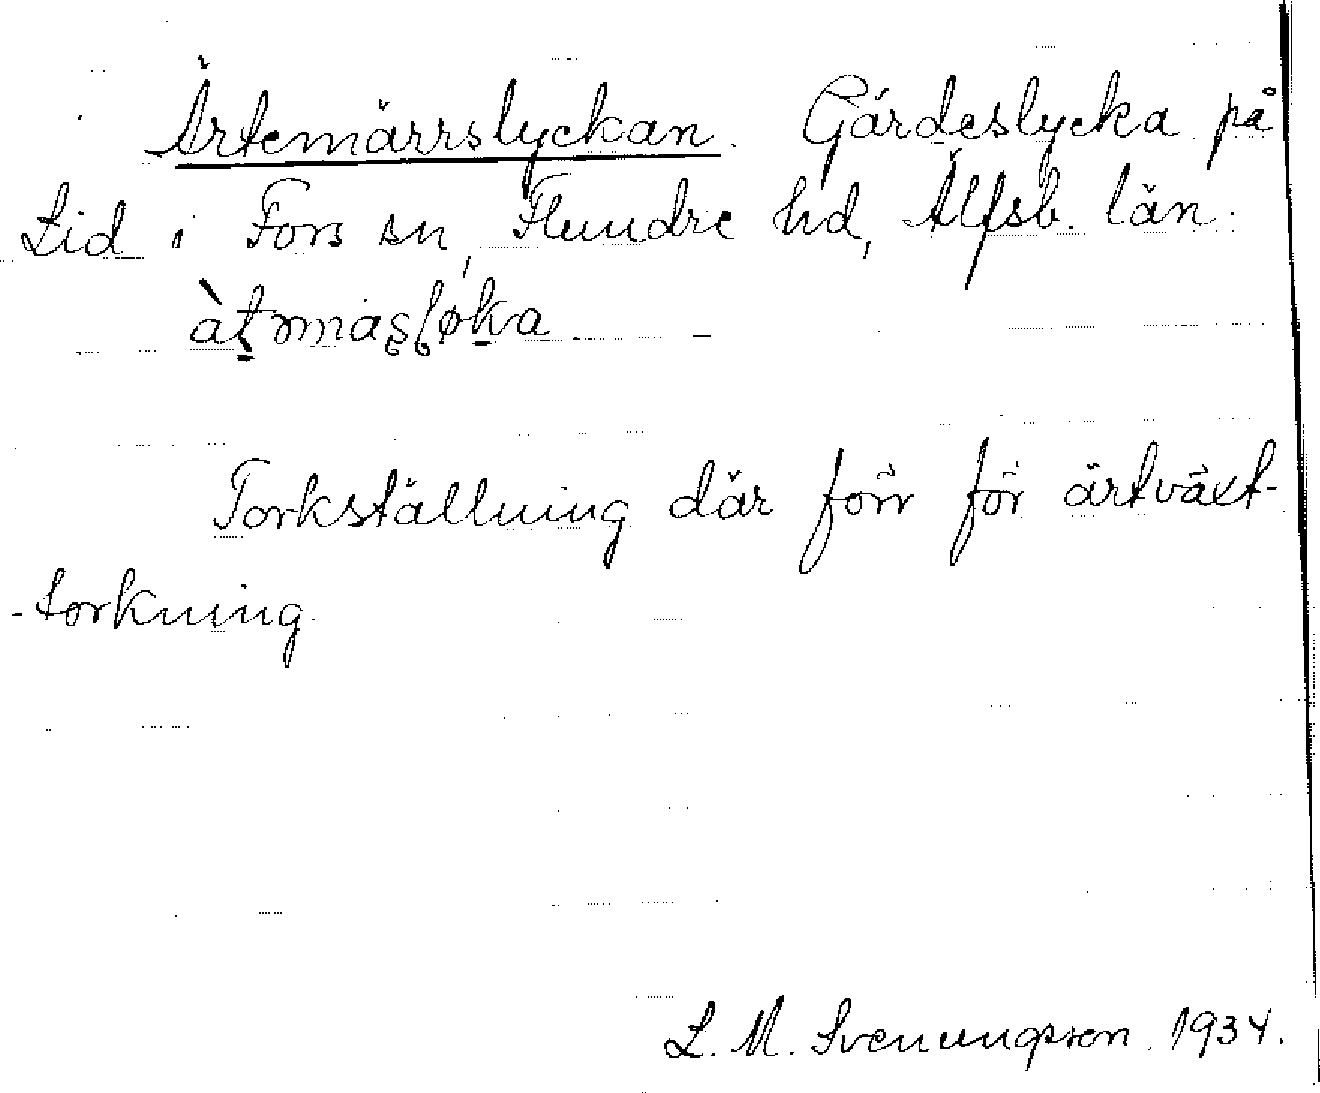 Ärtemärrslyckan. Gärdeslycka på
Lid i Fors sn, Flundre hd, Älfsb. län.
Torkställning där förr för ärtväxt-
-torkning.
L. M. Svenungsson 1934.